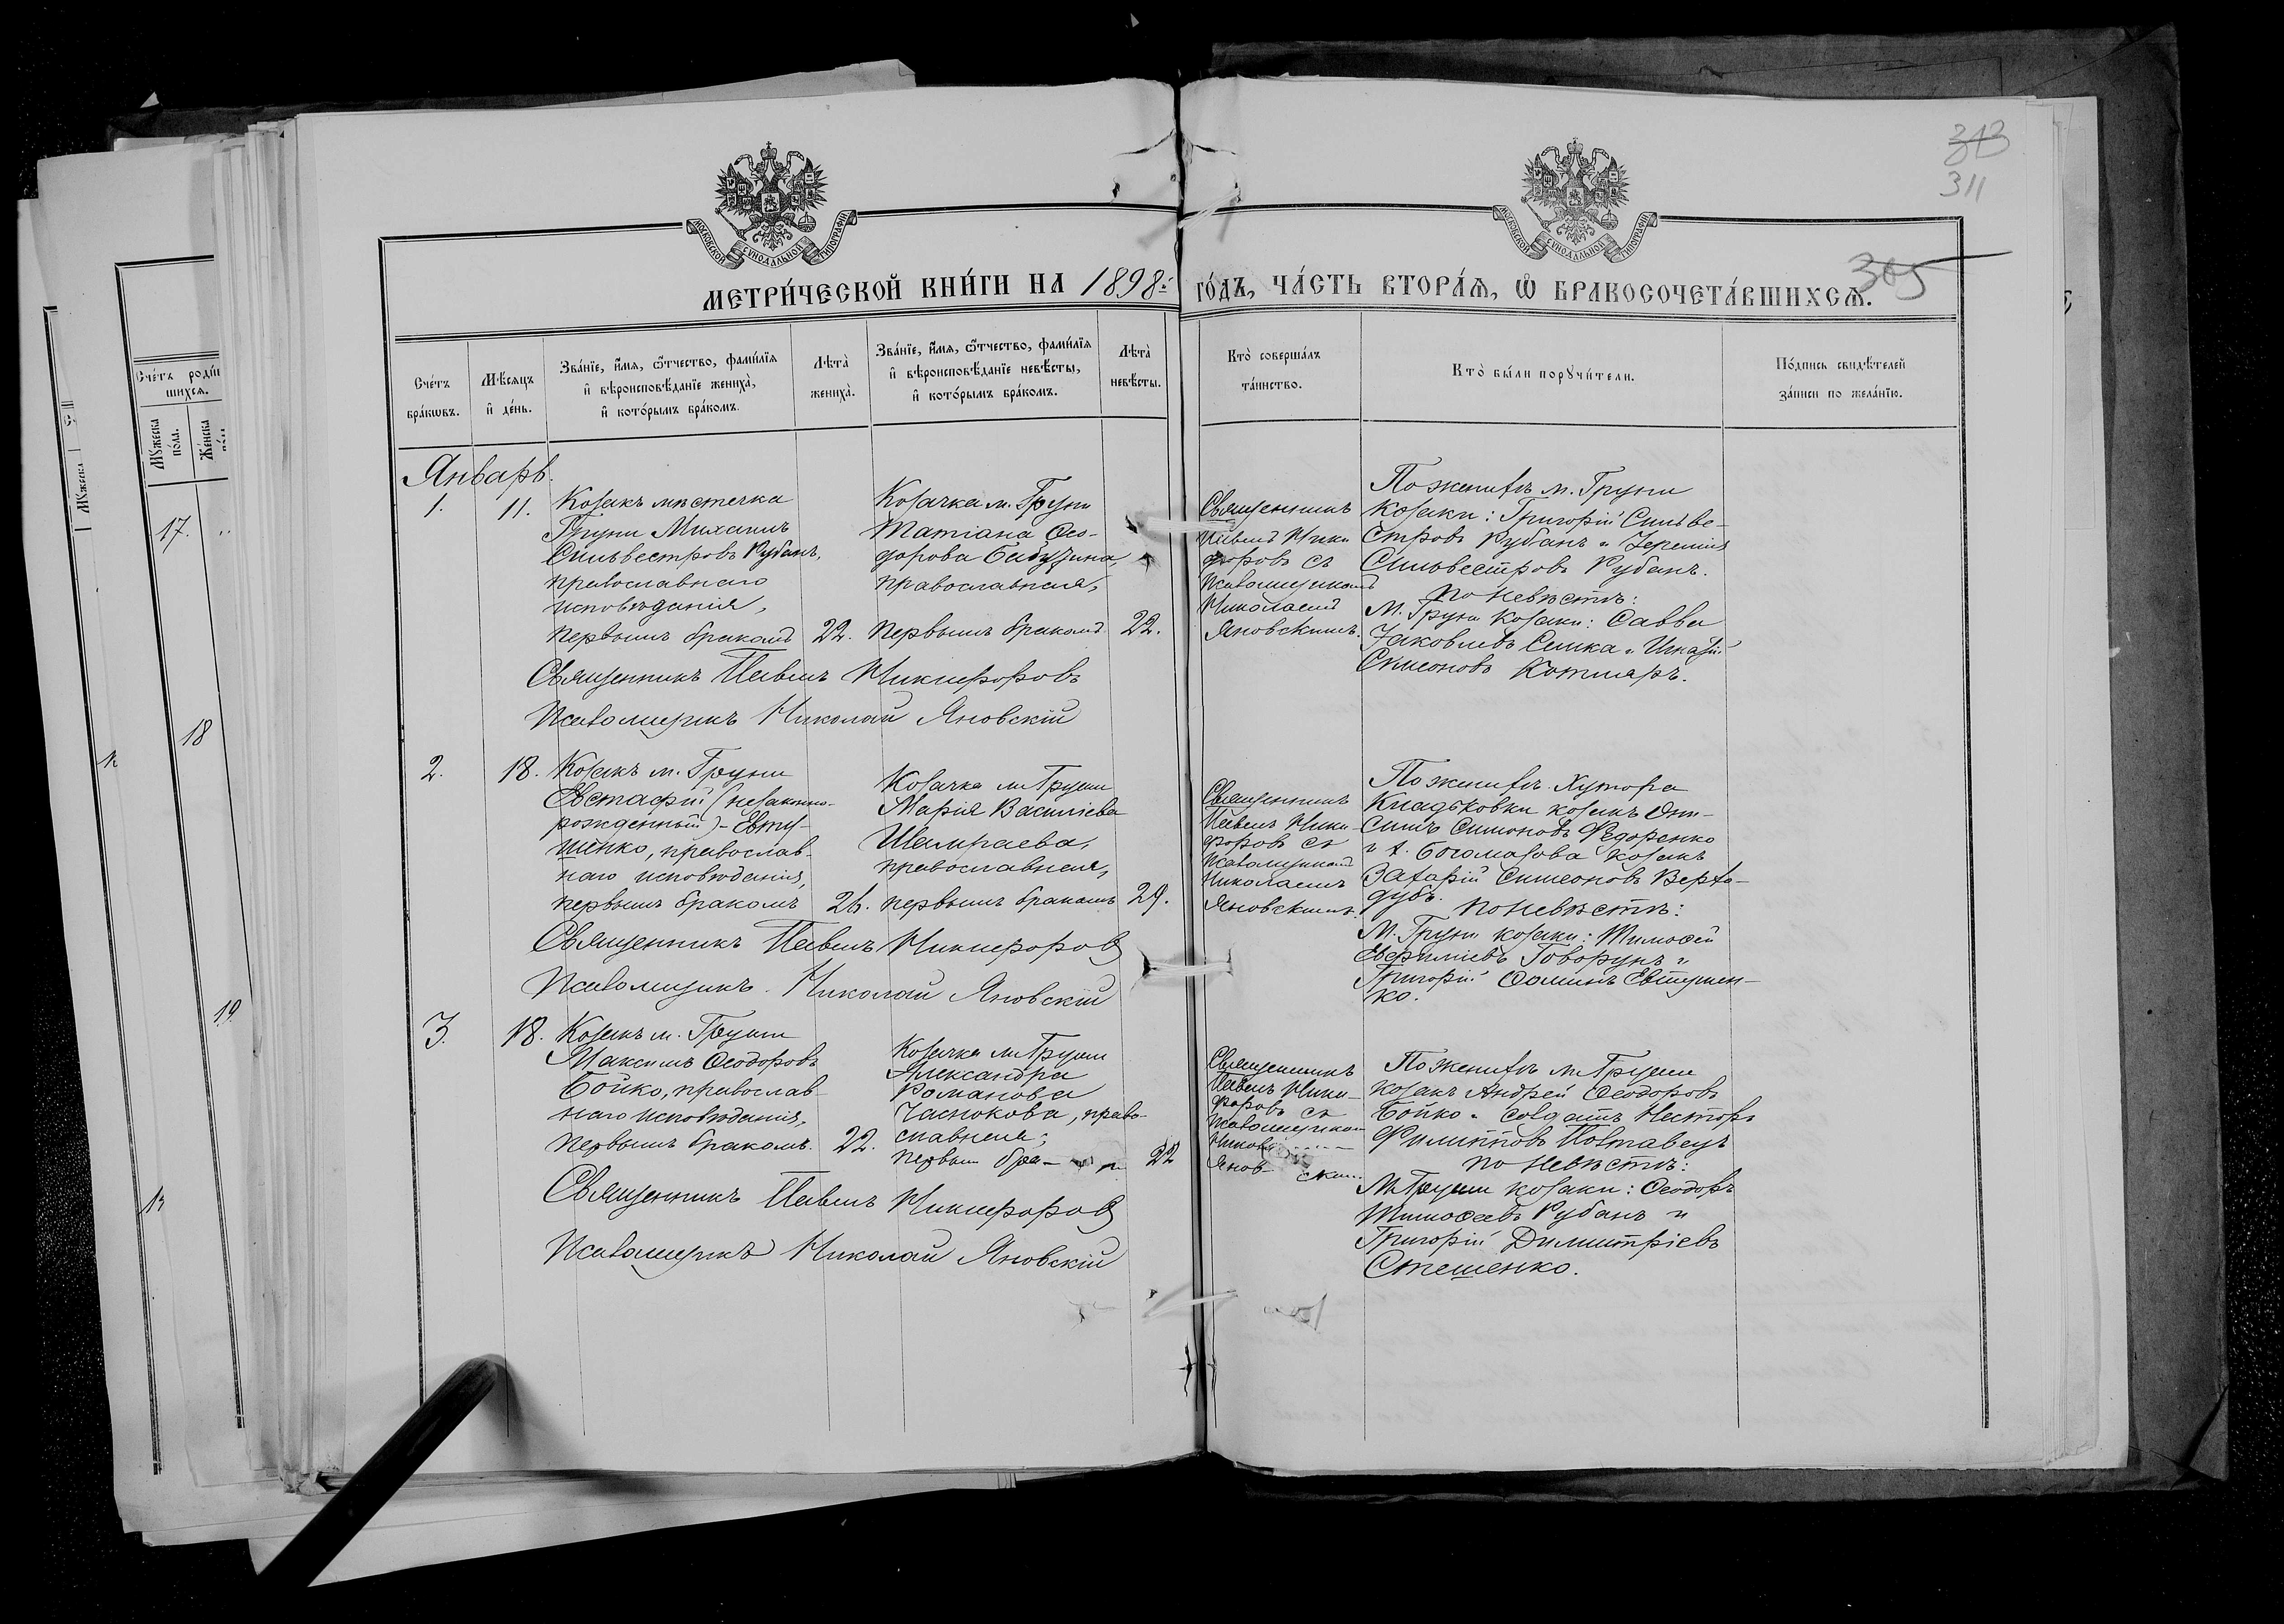 313
311
МОСКОВСКОЙ СѴНОДАЛЬНОЙ ТИПОГРАФІИ
МОСКОВСКОЙ СѴНОДАЛЬНОЙ ТИПОГРАФІИ
365
МЕТРИ́ЧЕСКОЙ КНИ́ГИ НА 1898й го́дъ, ЧА́СТЬ ВТОРА́Ѧ, Ѡ҆ БРАКОСОЧЕТА́ВШИХСѦ.
Сче́тъ бра́кѡвъ.
Мѣ́сѧцъ и҆ де́нь.
Зва́нїе, и҆́мѧ, ѻ҆́тчество, фами́лїѧ и҆ вѣроисповѣ́данїе жениха̀, и҆ кото́рымъ бра́комъ.
Лѣта̀ жениха̀.
Зва́нїе, и҆́мѧ, ѻ҆́тчество, фами́лїѧ и҆ вѣроисповѣ́данїе невѣ́сты, и҆ кото́рымъ бра́комъ.
Лѣта̀ невѣ́сты.
Кто̀ соверша́лъ та́инство.
Кто̀ бы́ли порꙋчи́тели.
По́дпись свидѣ́телей за́писи по жела́нїю.
Январь.
1.
11.
Козакъ мѣстечка
Груни Михаилъ
Сильвестровъ Рубанъ,
православнаго
исповѣданія,
первымъ бракомъ
22.
Козачка м. Груни
Татіана Ѳео-
дорова
православная,
первымъ бракомъ.
22.
Священникъ
Павелъ Ники
форовъ съ
псаломщикомъ
Николаемъ
Яновскимъ.
По женихѣ м. Груни
козаки: Григорій Сильве-
стровъ Рубанъ и Іеремія
Сильвестровъ Рубанъ.
по невѣстѣ:
М. Груни козаки: Савва
Іаковлевъ и
Симеоновъ Котляръ.
Священникъ Павелъ Никифоровъ
Псаломщикъ Николай Яновскій
2.
18.
Козакъ м. Груни
Евстафій (незаконно-
рожденный) - Евту-
шенко, православ-
наго исповѣданія,
первымъ бракомъ
26.
Козачка м. Груни
Марія Василіева
Шамраева,
православная,
первымъ бракомъ
29.
Священникъ
Павелъ Ники-
форовъ съ
псаломщикомъ
Николаемъ
Яновскимъ.
По женихѣ хутора
козакъ Они-
симъ Симоновъ Ѳедоренко
и х. Богомазова козакъ
Захарій Симеоновъ Верхо-
дубъ.
по невѣстѣ:
М. Груни козаки: Тимоѳей
Евфиміевъ Говорунъ и
Григорій Ѳоминъ Евтушен-
ко.
Священникъ Павелъ Никифоровъ
Псаломщикъ Николай Яновскій
3.
18.
Козакъ м. Груни
Максимъ Ѳеодоровъ
Бойко, православ-
наго исповѣданія,
первымъ бракомъ.
22.
Козачка м. Груни
Александра
Романова
православная;
первым бра-
22
Священникъ
Павелъ Ники-
форовъ съ
псаломщиком
Никола
Янов- ским.
По женихѣ м. Груни
козакъ Андрей Ѳеодоровъ
Бойко и солдатъ Несторъ
Филипповъ Полтавецъ
по невѣстѣ:
М. Груни козаки: Ѳеодоръ
Тимоѳеевъ Рубанъ и
Григорій Димитріевъ
Стешенко.
Священникъ Павелъ Никифоровъ
Псаломщикъ Николай Яновскій
Сче́тъ роди́
шихсѧ.
Мꙋ́жеска по́ла.
Же́нска
Мꙋ́жеска
17.
18
19